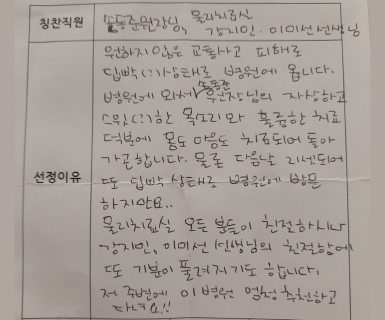 칭찬직원
손동준원장님, 물리치료실
강지민·이미선선생님
선정이유
원하지않은 교통사고 피해로
딥빡(?)상태로 병원에 옵니다.
병원에 와서 손동준 원장님의 자상하고
스윗(?)한 목소리와 훌륭한 치료
덕분에 몸도 마음도 치료되어 돌아
가곤합니다. 물론 다음날 리셋되어
또 딥빡 상태로 병원에 방문
하지만요..
물리치료실 모든 분들이 친절하시나
강지민, 이미선 선생님의 친절함에
또 기분이 풀려지기도 합니다.
저 주변에 이 병원 엄청 추천하고
다녀요!!